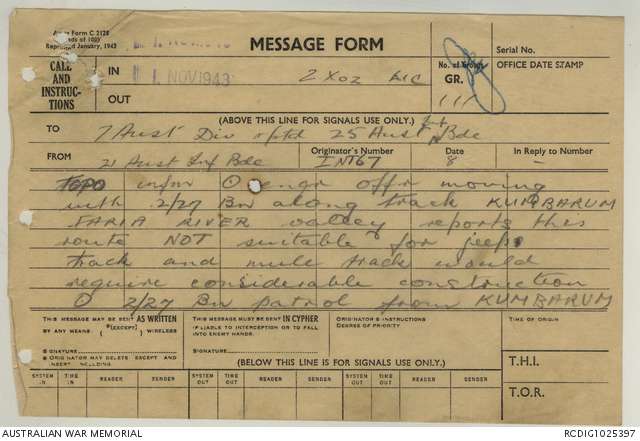 Army Form C 2128
Pads of 100
Reprinted January, 1942
MESSAGE FORM
Serial No.
CALL AND INSTRUCTIONS
IN
1 NOV 1943
2 X oz
No. of Groups
GR.
111
OFFICE DATE STAMP
OUT
(ABOVE THIS LINE FOR SIGNALS USE ONLY.)
TO
7 Aust Div rptd 25 Aust Inf Bde
FROM
21 Aust Inf Bde
Originator's Number
INT67
Date
8
In Reply to Number
-
TOPO infm O engr offr moving
with 2/27 Bn along track KUMBARUM
FARIA RIVER valley reports this
route NOT suitable for jeep
track and mule track would
require considerable construction
O 2/27 Bn patrol from KUMBARUM
THIS MESSAGE MAY BE SENT AS WRITTEN
BY ANY MEANS. (*[EXCEPT] ) WIRELESS
SIGNATURE
* ORIGINATOR MAY DELETE EXCEPT AND
INSERT INCLUDING.
THIS MESSAGE MUST BE SENT IN CYPHER
IF LIABLE TO INTERCEPTION OR TO FALL
INTO ENEMY HANDS.
SIGNATURE
ORIGINATOR'S INSTRUCTIONS
DEGREE OF PRIORITY
TIME OF ORIGIN
(BELOW THIS LINE IS FOR SIGNALS USE ONLY.)
T.H.I.
T.O.R.
SYSTEM IN
TIME IN
READER
SENDER
SYSTEM OUT
TIME OUT
READER
SENDER
SYSTEM OUT
TIME OUT
READER
SENDER
AUSTRALIAN WAR MEMORIAL
RCDIG1025397